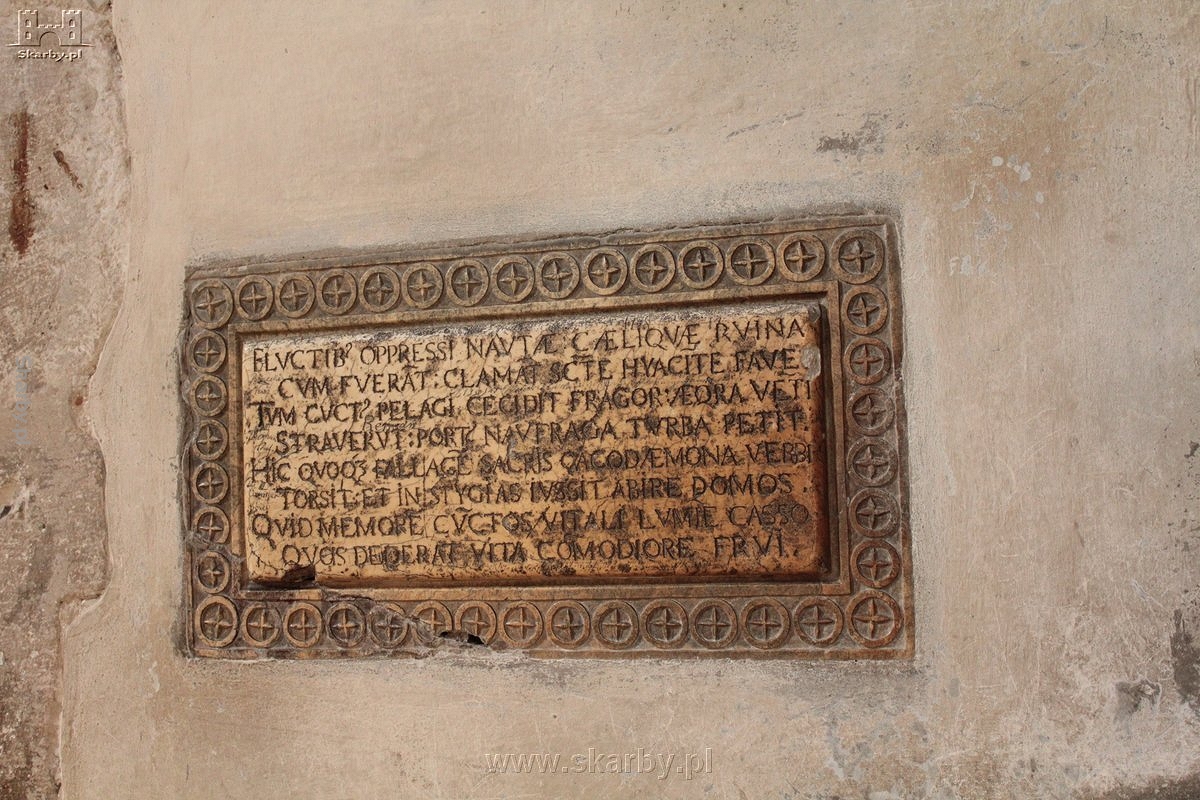 Skarby.pl
FLVCTIB' OPPRESSI NAVTÆ CÆLIQVÆ RVINA
CVM FVERAT: CLAMAT SCTE HYACITE FAVE
TVM CVCT' PELAGI CECIDIT FRAGOR: ÆORA VETI
STRAVERVT: PORT' NAVFRAGA TVRBA PETIT:
HIC QVOQꝫ FALLACE SACRIS CACODÆMONA VERBI
TORSIT: ET IN STYGIAS IVSSIT ABIRE DOMOS
QVID MEMORE CVCTOS VITALI LVMIE CASSO
QVEIS DEDERAT VITA COMODIORE FRVI.
www.skarby.pl